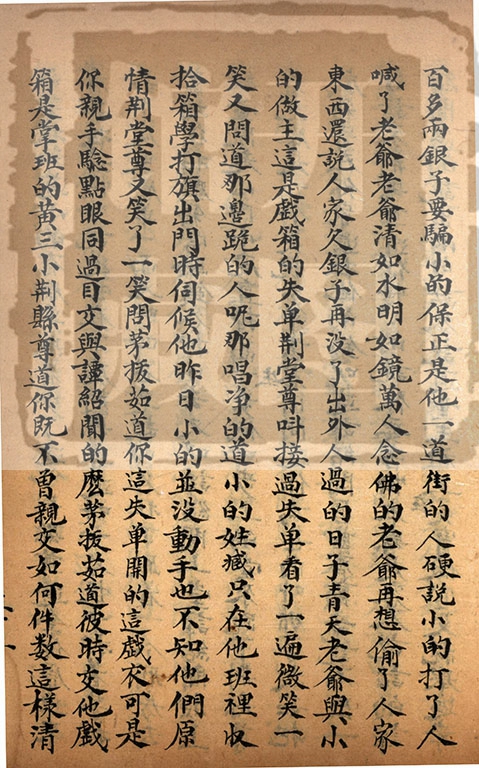 百多兩銀子要騙小的保正是他一道街的人硬說小的打了人
喊了老爺老爺清如水明如鏡萬人念佛的老爺再想偷了人家
東西還說人家欠銀子再没了出外人過的日子青天老爺與小
的做主這是戲箱的失单荆堂尊呌接過失单看了一遍微笑一
笑又問道那邉跪的人呢那唱净的道小的姓臧只在他班裡収
拾箱學打旗出門時伺候他昨日小的並没動手也不知他們原
情荆堂尊又笑了一笑問茅拔茹道你這失单開的這戲衣可是
你親手騐點眼同過目交與譚紹聞的麽茅拔茹道彼時交他戲
箱是掌班的黄三小荆縣尊道你既不曾親交如何件数這樣清